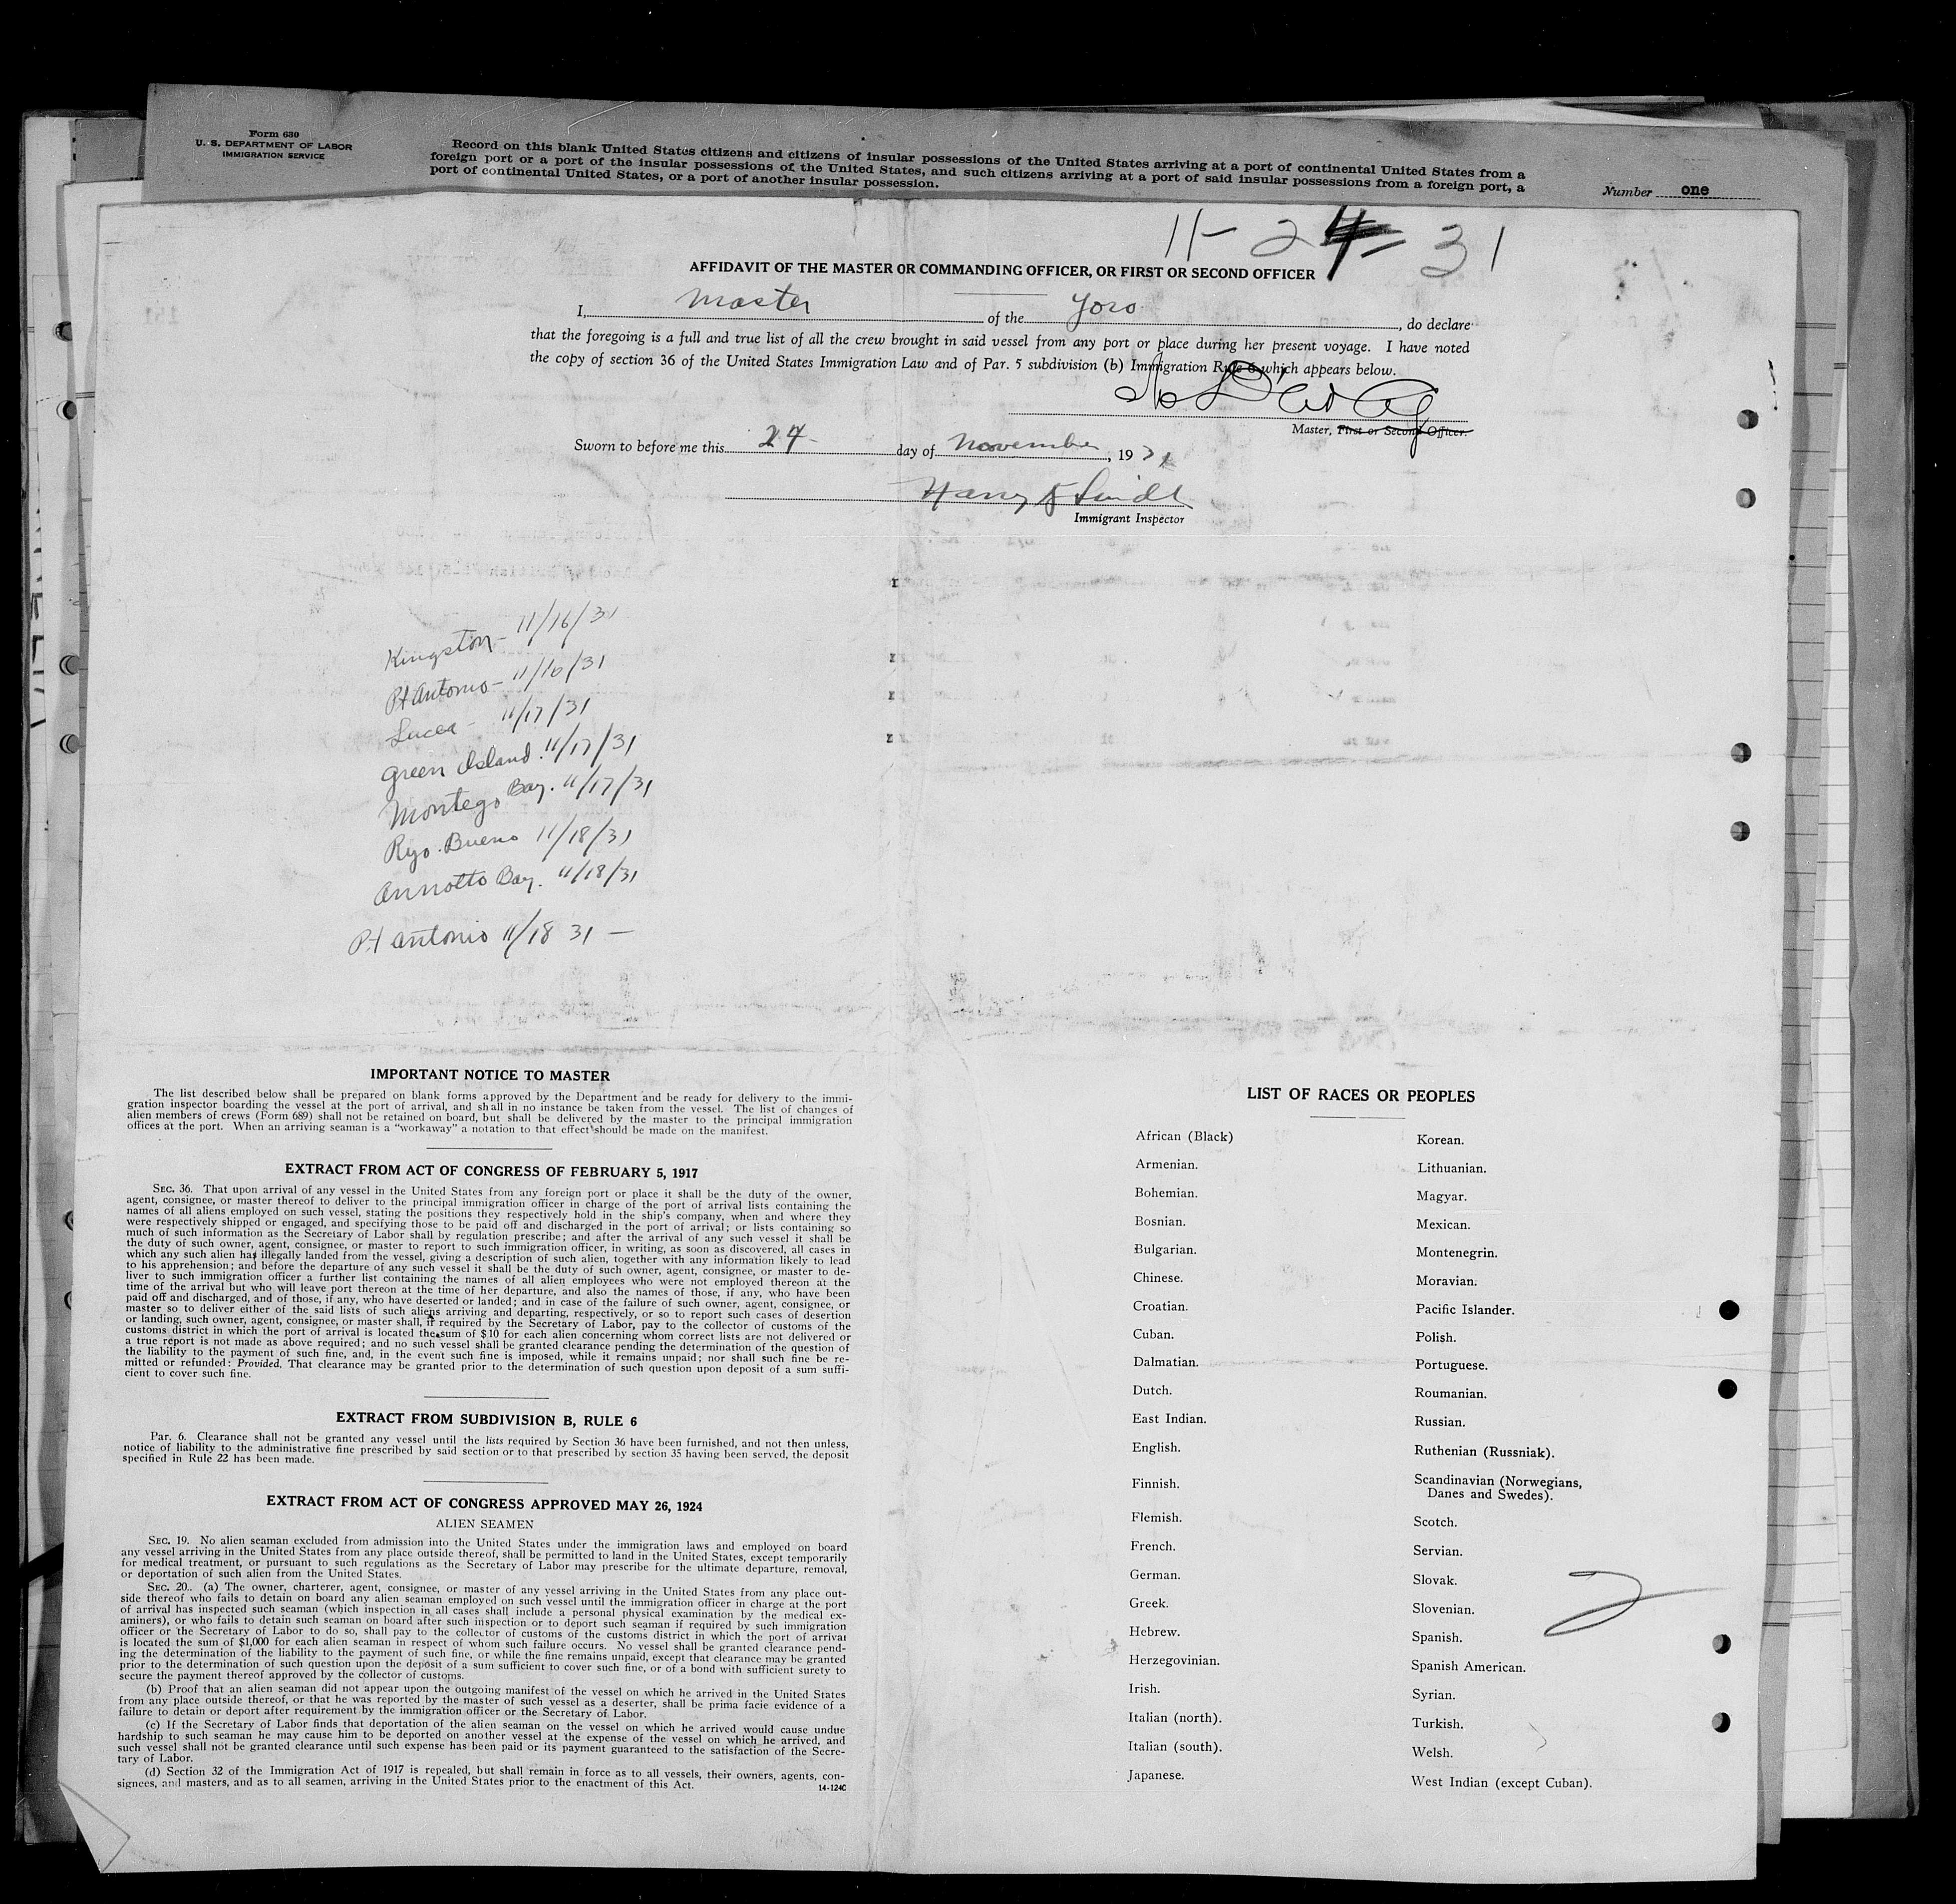 Form 630
U. S. DEPARTMENT OF LABOR
IMMIGRATION SERVICE
Record on this blank United States citizens and citizens of insular possessions of the United States arriving at a port of continental United States from a
foreign port or a port of the insular possessions of the United States, and such citizens arriving at a port of said insular possessions from a foreign port, a
port of continental United States, or a port of another insular possession.
Number one
11-24-31
AFFIDAVIT OF THE MASTER OR COMMANDING OFFICER, OR FIRST OR SECOND OFFICER
I, Master of the Yoro, do declare
that the foregoing is a full and true list of all the crew brought in said vessel from any port or place during her present voyage. I have noted
the copy of section 36 of the United States Immigration Law and of Par. 5 subdivision (b) Immigration Rule 6 which appears below.
Master, First or Second Officer.
Sworn to before me this 24 day of November, 1931
Harry
Immigrant Inspector
Kingston - 11/16/31
Pt Antonio - 11/16/31
Lucea - 11/17/31
Green Island. 11/17/31
Montego Bay. 11/17/31
Ryo. Bueno 11/18/31
Annotto Bay. 11/18/31
Pt Antonio 11/18 31 -
IMPORTANT NOTICE TO MASTER
The list described below shall be prepared on blank forms approved by the Department and be ready for delivery to the immi-
gration inspector boarding the vessel at the port of arrival, and shall in no instance be taken from the vessel. The list of changes of
alien members of crews (Form 689) shall not be retained on board, but shall be delivered by the master to the principal immigration
offices at the port. When an arriving seaman is a "workaway" a notation to that effect should be made on the manifest.
EXTRACT FROM ACT OF CONGRESS OF FEBRUARY 5, 1917
SEC. 36. That upon arrival of any vessel in the United States from any foreign port or place it shall be the duty of the owner,
agent, consignee, or master thereof to deliver to the principal immigration officer in charge of the port of arrival lists containing the
names of all aliens employed on such vessel, stating the positions they respectively hold in the ship's company, when and where they
were respectively shipped or engaged, and specifying those to be paid off and discharged in the port of arrival; or lists containing so
much of such information as the Secretary of Labor shall by regulation prescribe; and after the arrival of any such vessel it shall be
the duty of such owner, agent, consignee, or master to report to such immigration officer, in writing, as soon as discovered, all cases in
which any such alien has illegally landed from the vessel, giving a description of such alien, together with any information likely to lead
to his apprehension; and before the departure of any such vessel it shall be the duty of such owner, agent, consignee, or master to de-
liver to such immigration officer a further list containing the names of all alien employees who were not employed thereon at the
time of the arrival but who will leave port thereon at the time of her departure, and also the names of those, if any, who have been
paid off and discharged, and of those, if any, who have deserted or landed; and in case of the failure of such owner, agent, consignee, or
master so to deliver either of the said lists of such aliens arriving and departing, respectively, or so to report such cases of desertion
or landing, such owner, agent, consignee, or master shall, if required by the Secretary of Labor, pay to the collector of customs of the
customs district in which the port of arrival is located the sum of $10 for each alien concerning whom correct lists are not delivered or
a true report is not made as above required; and no such vessel shall be granted clearance pending the determination of the question of
the liability to the payment of such fine, and, in the event such fine is imposed, while it remains unpaid; nor shall such fine be re-
mitted or refunded: Provided, That clearance may be granted prior to the determination of such question upon deposit of a sum suffi-
cient to cover such fine.
EXTRACT FROM SUBDIVISION B, RULE 6
Par. 6. Clearance shall not be granted any vessel until the lists required by Section 36 have been furnished, and not then unless,
notice of liability to the administrative fine prescribed by said section or to that prescribed by section 35 having been served, the deposit
specified in Rule 22 has been made.
EXTRACT FROM ACT OF CONGRESS APPROVED MAY 26, 1924
ALIEN SEAMEN
SEC. 19. No alien seaman excluded from admission into the United States under the immigration laws and employed on board
any vessel arriving in the United States from any place outside thereof, shall be permitted to land in the United States, except temporarily
for medical treatment, or pursuant to such regulations as the Secretary of Labor may prescribe for the ultimate departure, removal,
or deportation of such alien from the United States.
SEC. 20.. (a) The owner, charterer, agent, consignee, or master of any vessel arriving in the United States from any place out-
side thereof who fails to detain on board any alien seaman employed on such vessel until the immigration officer in charge at the port
of arrival has inspected such seaman (which inspection in all cases shall include a personal physical examination by the medical ex-
aminers), or who fails to detain such seaman on board after such inspection or to deport such seaman if required by such immigration
officer or the Secretary of Labor to do so, shall pay to the collector of customs of the customs district in which the port of arrival
is located the sum of $1,000 for each alien seaman in respect of whom such failure occurs. No vessel shall be granted clearance pend-
ing the determination of the liability to the payment of such fine, or while the fine remains unpaid, except that clearance may be granted
prior to the determination of such question upon the deposit of a sum sufficient to cover such fine, or of a bond with sufficient surety to
secure the payment thereof approved by the collector of customs.
(b) Proof that an alien seaman did not appear upon the outgoing manifest of the vessel on which he arrived in the United States
from any place outside thereof, or that he was reported by the master of such vessel as a deserter, shall be prima facie evidence of a
failure to detain or deport after requirement by the immigration officer or the Secretary of Labor.
(c) If the Secretary of Labor finds that deportation of the alien seaman on the vessel on which he arrived would cause undue
hardship to such seaman he may cause him to be deported on another vessel at the expense of the vessel on which he arrived, and
such vessel shall not be granted clearance until such expense has been paid or its payment guaranteed to the satisfaction of the Secre-
tary of Labor.
(d) Section 32 of the Immigration Act of 1917 is repealed, but shall remain in force as to all vessels, their owners, agents, con-
signees, and masters, and as to all seamen, arriving in the United States prior to the enactment of this Act.
14-124C
LIST OF RACES OR PEOPLES
African (Black)
Armenian.
Bohemian.
Bosnian.
Bulgarian.
Chinese.
Croatian.
Cuban.
Dalmatian.
Dutch.
East Indian.
English.
Finnish.
Flemish.
French.
German.
Greek.
Hebrew.
Herzegovinian.
Irish.
Italian (north).
Italian (south).
Japanese.
Korean.
Lithuanian.
Magyar.
Mexican.
Montenegrin.
Moravian.
Pacific Islander.
Polish.
Portuguese.
Roumanian.
Russian.
Ruthenian (Russniak).
Scandinavian (Norwegians,
Danes and Swedes).
Scotch.
Servian.
Slovak.
Slovenian.
Spanish.
Spanish American.
Syrian.
Turkish.
Welsh.
West Indian (except Cuban).
2